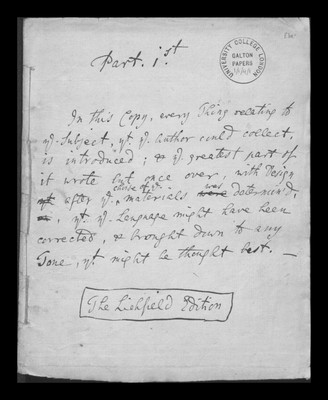 Part. 1.st
UNIVERSITY COLLEGE LONDON
GALTON
PAPERS
In this Copy, every Thing relating to
ye. Subject, yt. ye. Author could collect,
is introduced; & ye. greatest part of
it wrote but once over, with Design
after ye. materials was determin'd,
, yt. ye. Language might have been
corrected, & brought down to any
Tone, yt. might be thought best. —
The Lichfield Edition